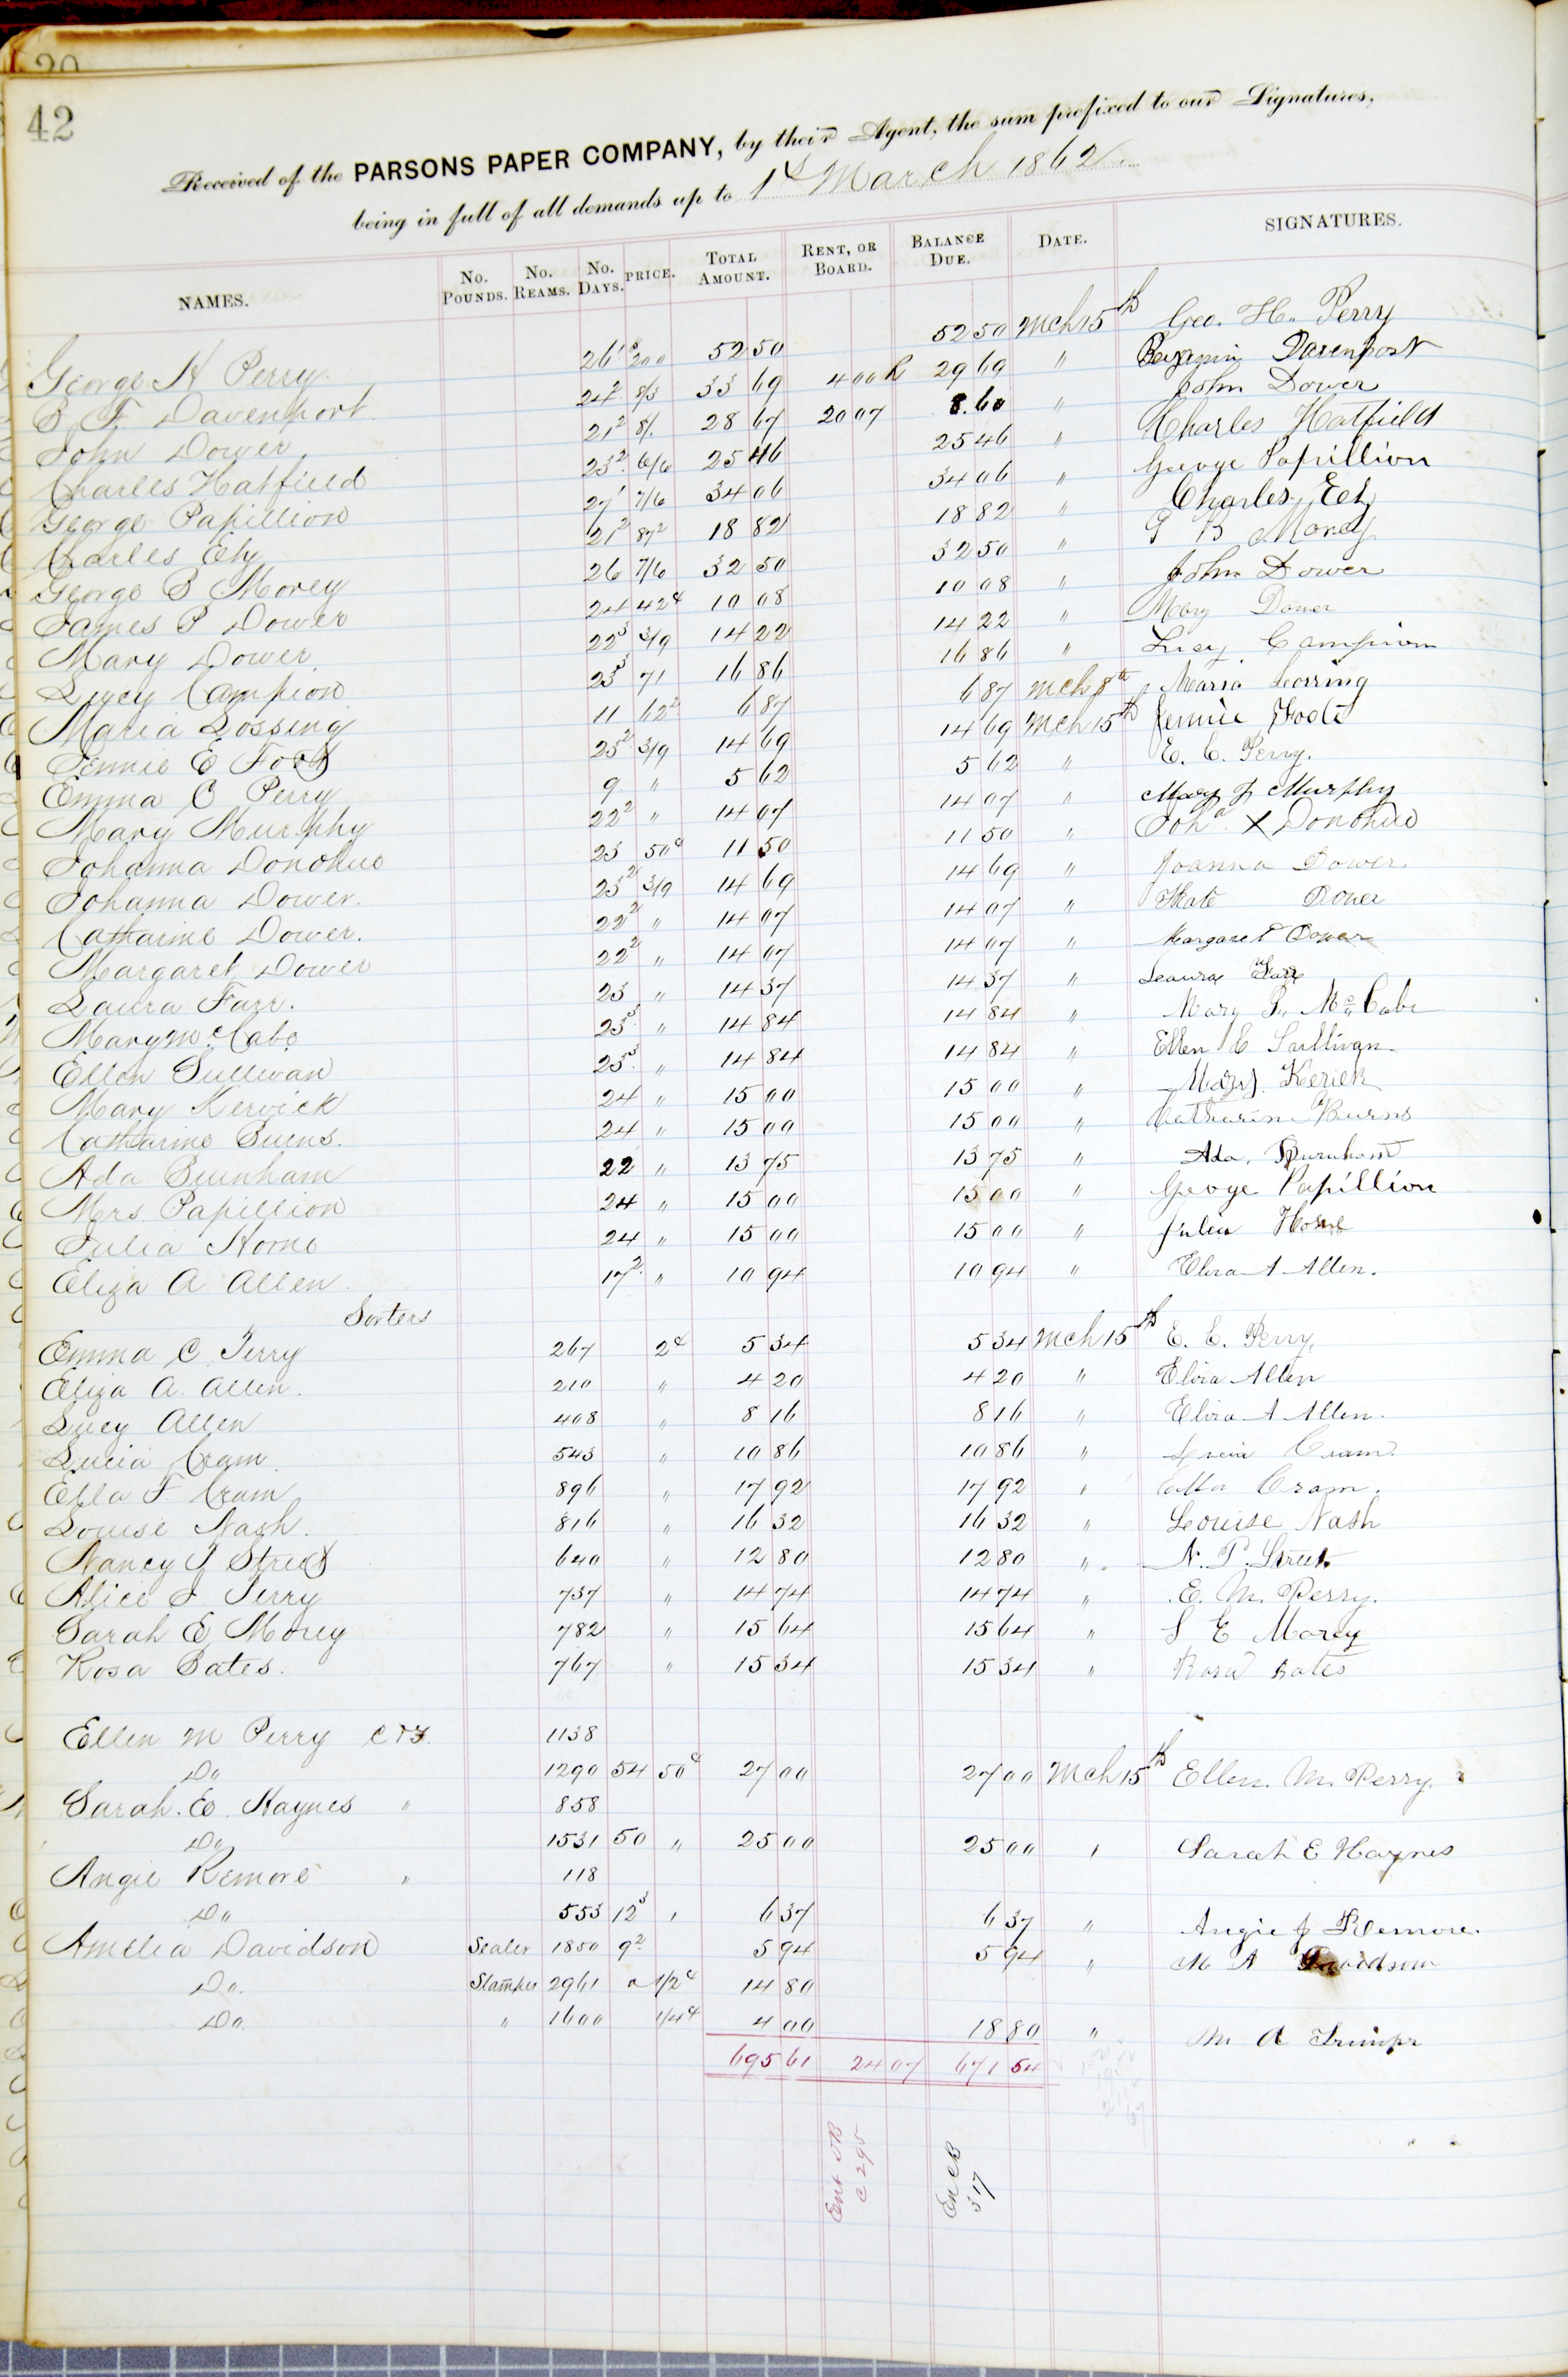 20
42
Received of the PARSONS PAPER COMPANY, by their Agent, the sum prefixed to our Signatures,
being in full of all demands up to 1st March 1862.
NAMES. No. POUNDS. No. REAMS. No. DAYS. PRICE. TOTAL AMOUNT. RENT, OR BOARD. BALANCE DUE. DATE. SIGNATURES.
George H Perry 26 1 200 52 50 52 50 Mch 15th Geo. H. Perry
B. F. Davenport 24 2 8/3 33 69 4 00 R 29 69 " Benjamin Davenport
John Dower 21 2 8/. 28 67 20 07 8.60 " John Dower
Charles Hatfield 23 2 6/6 25 46 25 46 " Charles Hatfield
George Papillion 27 1 7/6 34 06 34 06 " George Papillion
Charles Ely 21 2 87 2 18 82 18 82 " Charles Ely
George B Morey 26 7/6 32 50 32 50 " G B Morey
James P Dower 24 42 c 10 08 10 08 " John Dower
Mary Dower 22 3 3/9 14 22 14 22 " Mary Dower
Lucy Campion 23 3 71 16 86 16 86 " Lucy Campion
Maria Lossing 11 62 2 6 87 6 87 Mch 8th Maria Lossing
Jennie E Foot 23 2 3/9 14 69 14 69 Mch 15th Jennie Foote
Emma C Perry 9 " 5 62 5 62 " E. C. Perry.
Mary Murphy 22 2 " 14 07 14 07 " Mary J Murphy
Johanna Donohue 23 50 c 11 50 11 50 " Joha X Donohue
Johanna Dower. 23 2 3/9 14 69 14 69 " Joanna Dower
Catharine Dower. 22 2 " 14 07 14 07 " Kate Dower
Margaret Dower 22 2 " 14 07 14 07 " Margaret Dower
Laura Farr. 23 " 14 37 14 37 " Leaura Farr
Mary McCabe 23 3 " 14 84 14 84 " Mary P. McCabe
Ellen Sullivan 23 3 " 14 84 14 84 " Ellen E Sullivan
Mary Kervick 24 " 15 00 15 00 " Mary Kerick
Catharine Burns. 24 " 15 00 15 00 " Catharine Burns
Ada Burnham 22 " 13 75 13 75 " Ada. Burnham
Mrs Papillion 24 " 15 00 15 00 " George Papillion
Julia Horne 24 " 15 00 15 00 " Julia Horne
Eliza A Allen 17 2 " 10 94 10 94 " Eliza A Allen.
Sorters
Emma C Perry 267 2 c 5 34 5 34 Mch 15th E. C. Perry,
Eliza A. Allen. 210 " 4 20 4 20 " Eliza Allen
Lucy Allen 408 " 8 16 8 16 " Eliza A Allen.
Lucia Cram 543 " 10 86 10 86 " Lucia Cram.
Ella F. Cram 896 " 17 92 17 92 " Ella Cram.
Louise Nash. 816 " 16 32 16 32 " Louise Nash
Nancy J Street 640 " 12 80 12 80 " N. P. Street
Alice J. Perry 737 " 14 74 14 74 " E. M. Perry.
Sarah E Morey 782 " 15 64 15 64 " S E Morey
Rosa Bates. 767 " 15 34 15 34 " Rosa Bates
Ellen M Perry C & F. 1138
Do 1290 54 50 c 27 00 27 00 Mch 15th Ellen. M. Perry.
Sarah. E. Haynes " 858
Do 1531 50 " 25 00 25 00 " Sarah E Haynes
Angie Remore " 118
Do 553 12 3 " 6 37 6 37 " Angie J Remore.
Amelia Davidson Sealer 1850 9 2 5 94 5 94 " M A Davidson
Do. Stamper 2961 a 1/2 c 14 80
Do. " 1600 1/4 c 4 00 18 80 " M A
695 61 24 07 671 54
Ent DB
C 295
En CB
317